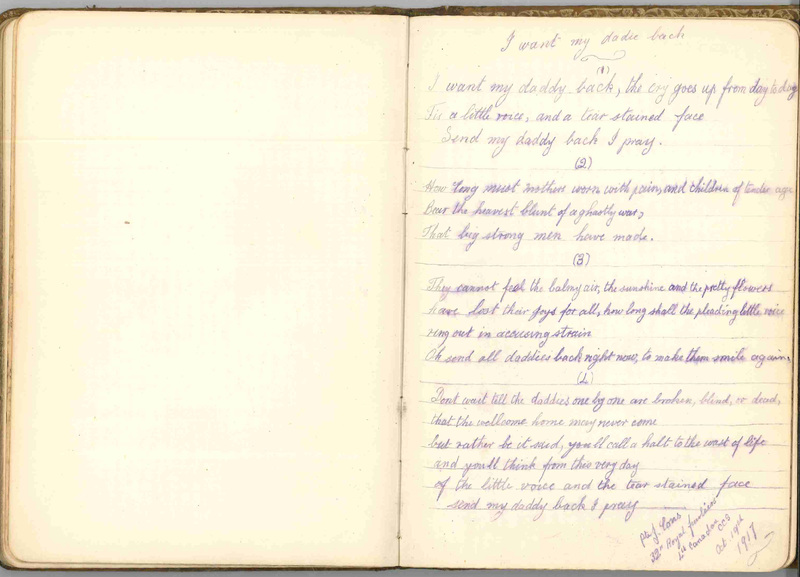 I want my dadie back
(1)
I want my daddy back, the cry goes up from day to day
Tis a little voice, and a tear stained face
Send my daddy back I pray.
(2)
How long must mothers worn with pain, and children of tender age
Bear the heavest blunt of a ghastly war,
That big strong men have made.
(3)
They cannot feel the balmy air, the sunshine and the pretty flowers
have lost their joys for all, how long shall the pleading little voice
ring out in accusing strain
Oh send all daddies back right now, to make them smile again.
(4)
Dont wait till the daddies one by one are broken, blind, or dead,
that the wellcome home may never come
but rather be it said, you'll call a halt to the wast of life
and you'll think from this very day
of the little voice and the tear stained face
send my daddy back I pray
Pte J.
22nd Royal Fusiliers
Canadian CCS
Oct 19th
1917